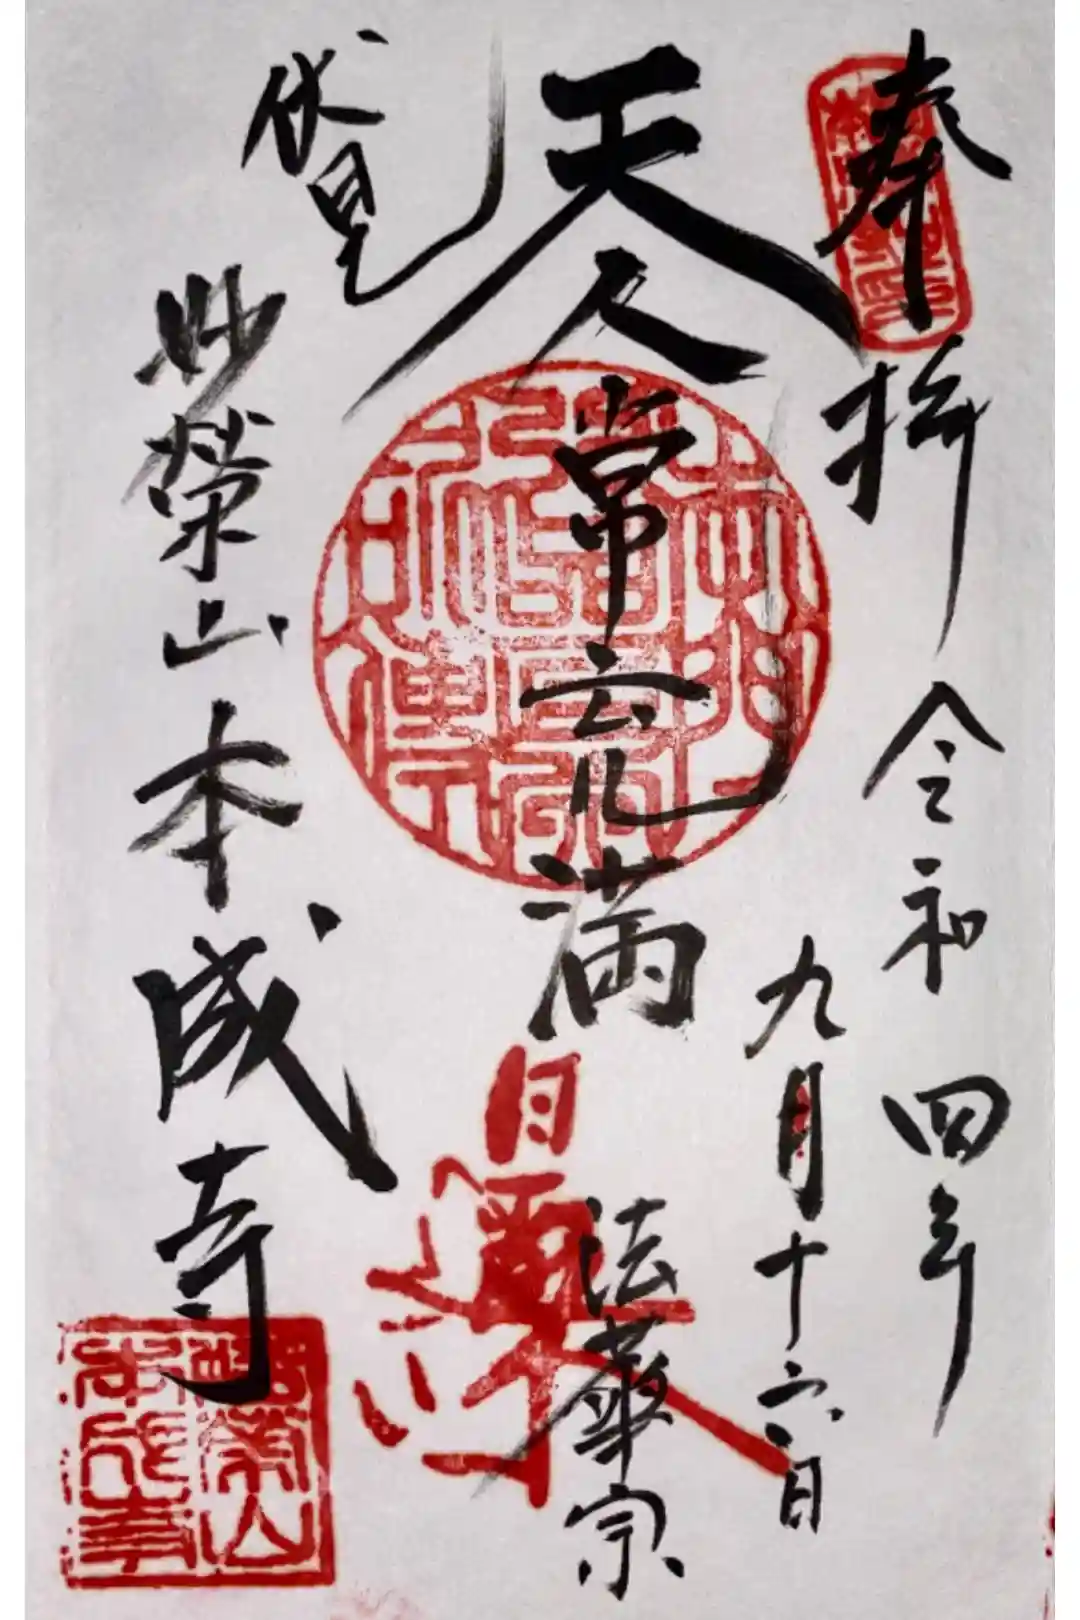 奉拝 令和四年
九月十六日
天人常充満
法華宗
伏見
妙榮山 本成寺
妙榮山
本成寺